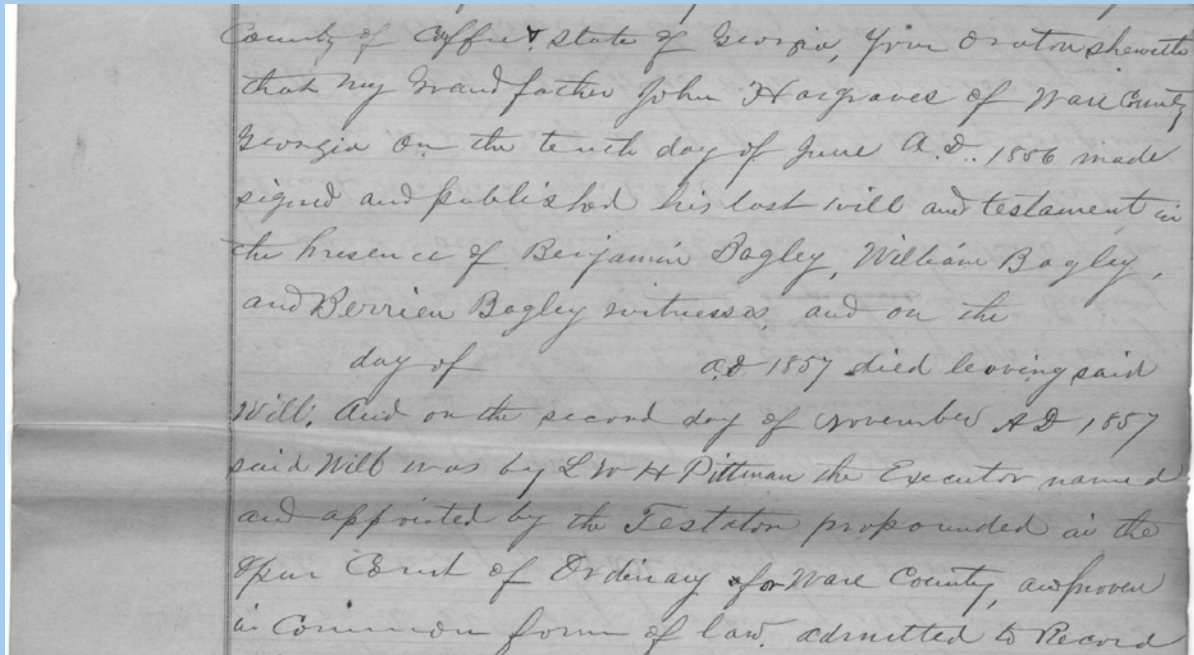 County of Coffee & state of Georgia, Your Orator sheweth
that my Grand father John Hargraves of Ware County
Georgia on the tenth day of June A.D. 1856 made
signed and published his last will and testament in
the presence of Benjamin Bagley, William Bagley,
and Berrien Bagley witnesses, and on the
day of A.D 1857 died leaving said
Will. And on the second day of November AD 1857
said Will was by L W H Pittman the Executor named
and appointed by the Testator propounded in the
open Court of Ordinary of for Ware County, and proven
in Common form of law. admitted to Record